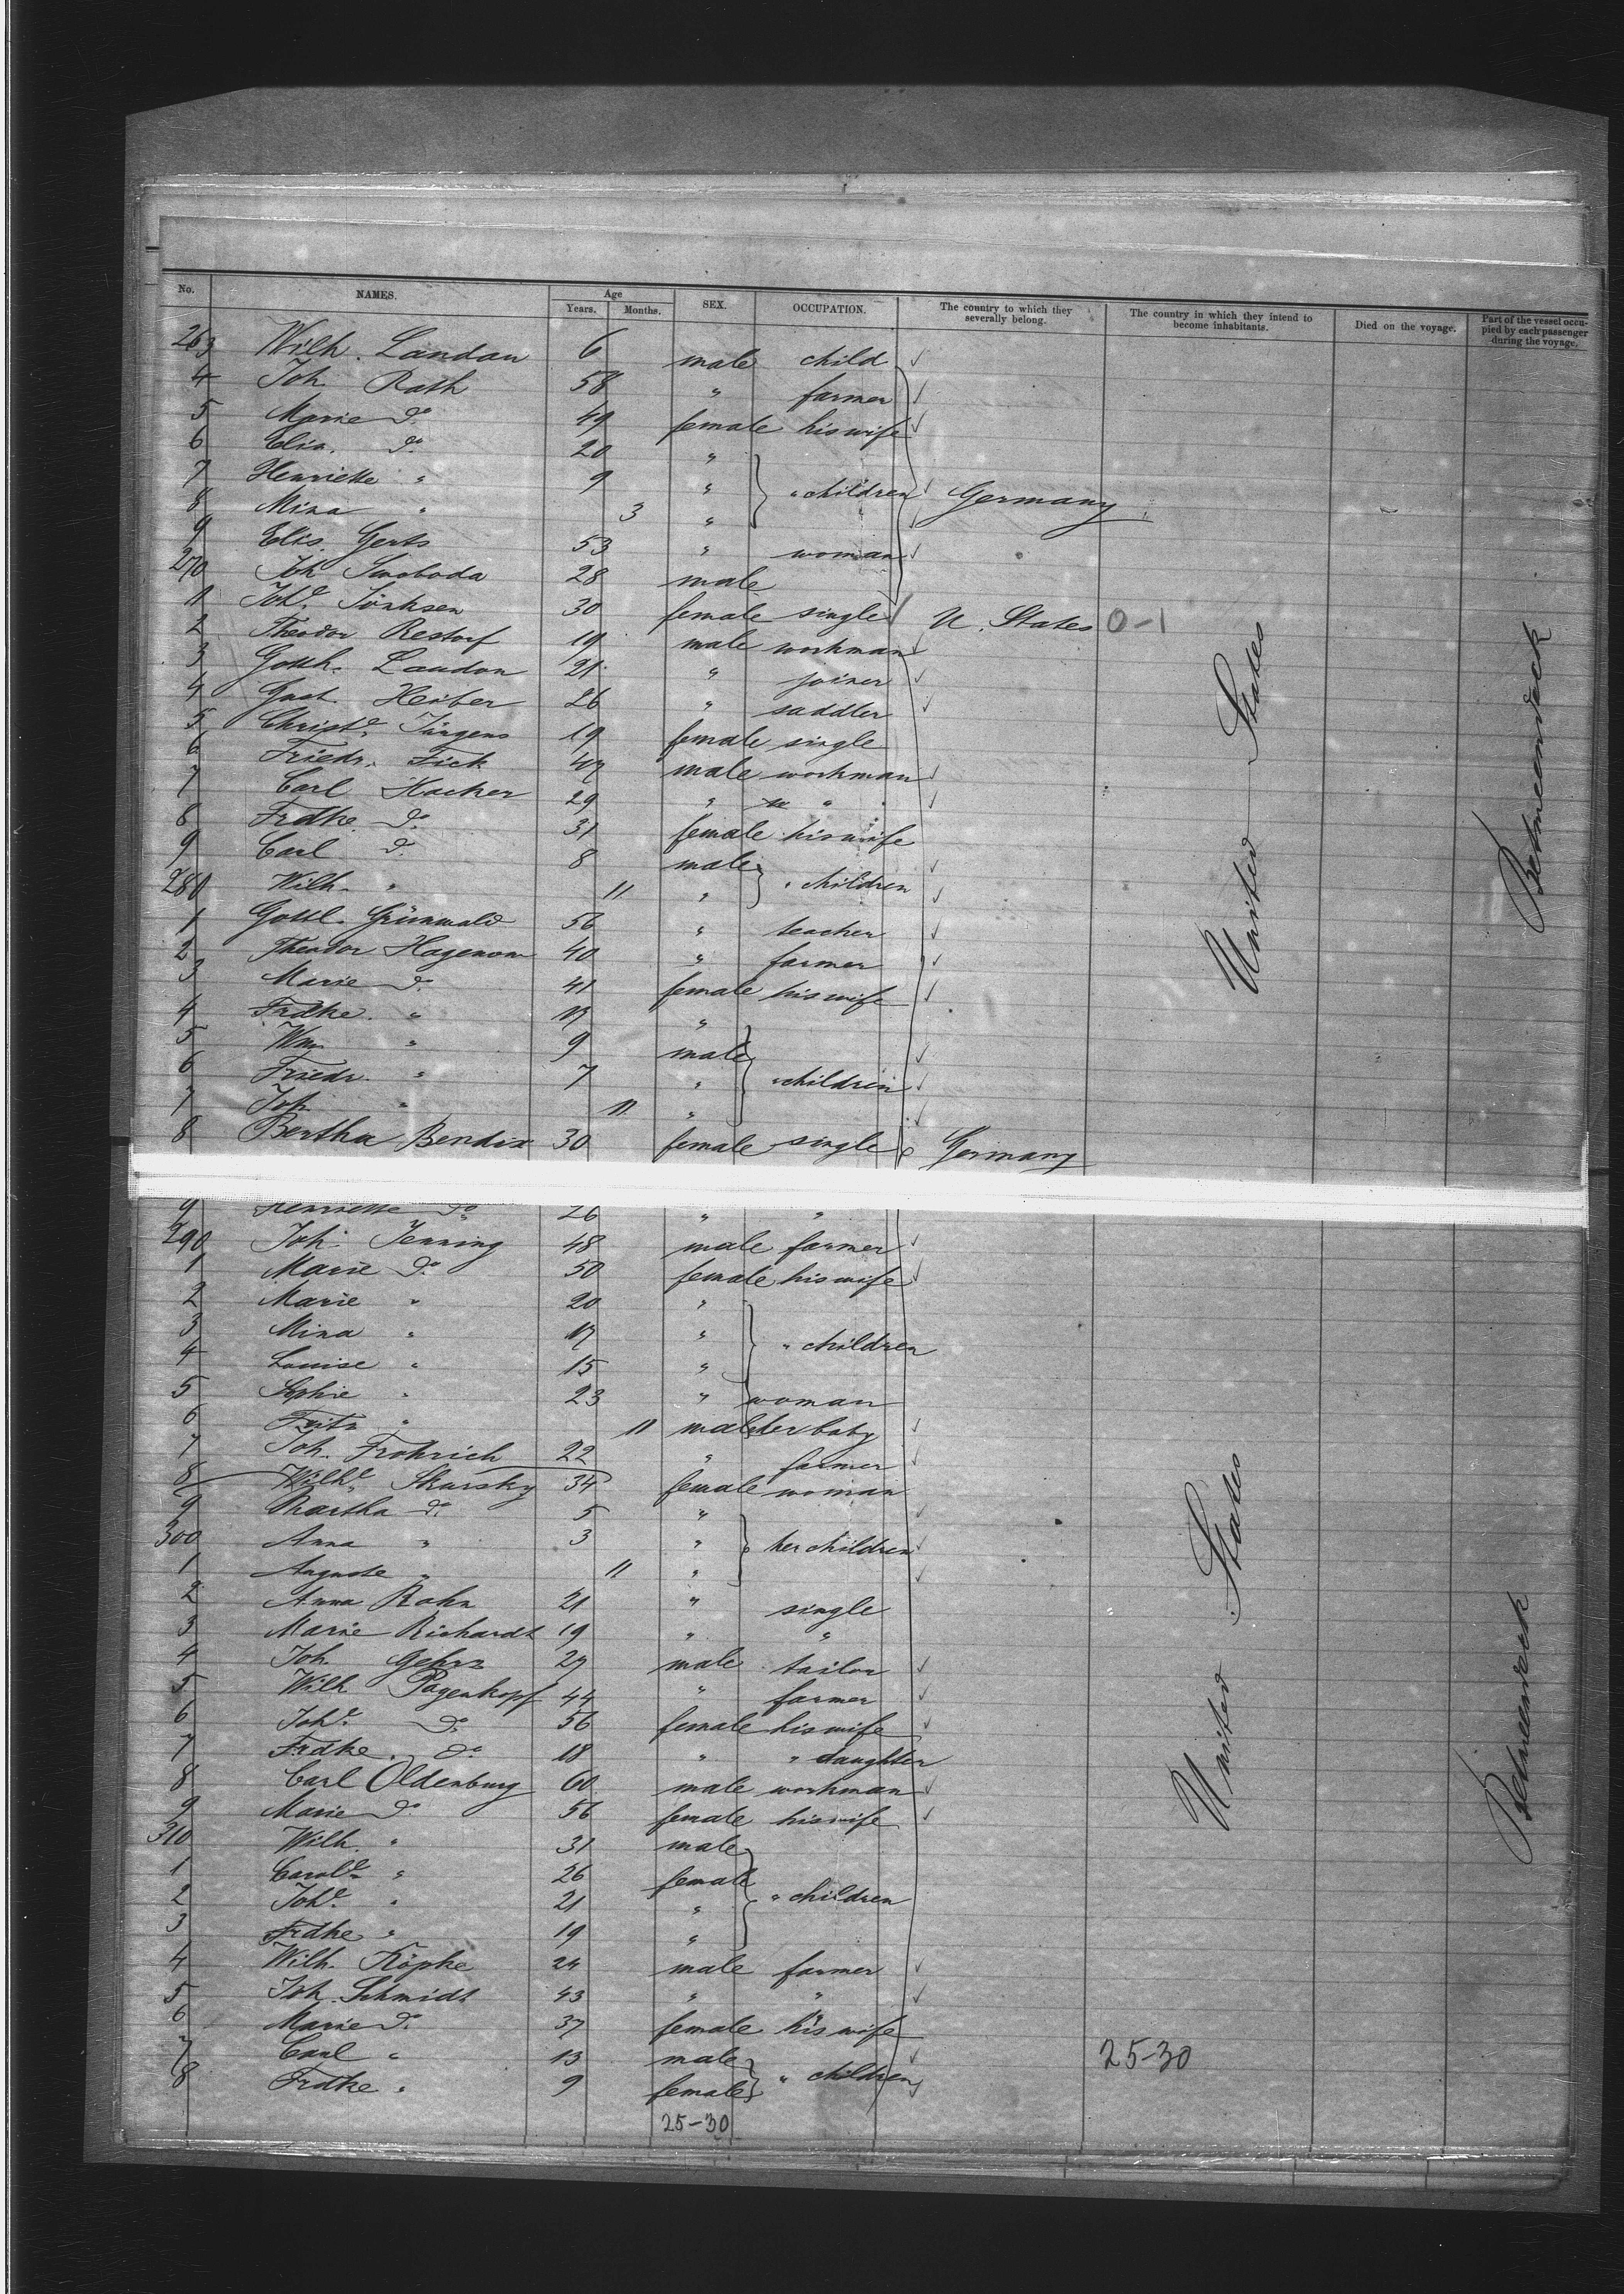 No. NAMES. Age Years. Months. SEX. OCCUPATION. The country to which they severally belong. The country in which they intend to become inhabitants. Died on the voyage. Part of the vessel occupied by each passenger during the voyage.
263 Wilh. Landau 6 male child
4 Joh. Rath 58 " farmer
5 Marie do. 49 female his wife
6 Elis. do. 20 "
7 Henriette " 9 " " children Germany
8 Mina " 3 "
9 Elis. Gerts 53 " woman
270 Joh. Swoboda 28 male
11 Johe. Sönksen 30 female single U. States 0-1
2 Theodor Restorf 19 male workman
3 Gotth. Landon 21 " joiner
4 Gust. Heiber 26 " saddler
5 Christe. Jürgens 19 female single
6 Friedr. Fick 47 male workman
7 Carl Hacker 29 " "
8 Frdke. do. 31 female his wife
9 Carl do. 8 male " children
280 Wilh. " 11 "
1 Gottl. Grünwald 56 " teacher
2 Theodor Hagenow 40 " farmer
3 Marie do. 41 female his wife
4 Frdke. " 17 "
5 Wm. " 9 male
6 Friedr. " 7 " " children
7 Joh. " 11 "
8 Bertha Bendix 30 female single Germany
United States
Betweendeck
9 Henriette do. 26 " "
290 Joh. Jenning 48 male farmer
1 Marie do. 50 female his wife
2 Marie " 20 "
3 Mina " 17 " " children
4 Louise " 15 "
5 Sophie " 23 " woman
6 Fritz " 11 male her baby
7 Joh. Frohrich 22 " farmer
8 Wilhe. Skursky 34 female woman
9 Martha do. 5 "
300 Anna " 3 " her children
1 Auguste " 11 "
2 Anna Rahn 21 " single
3 Marie Richardt 19 " "
4 Joh. Gehrz 27 male tailor
5 Wilh. Pagenkopf 44 " farmer
6 Johe. do. 56 female his wife
7 Frdke. do. 18 " " daughter
8 Carl Oldenburg 60 male workman
9 Marie do. 56 female his wife
310 Wilh. " 31 male
1 Carole. " 26 female
2 Johe. " 21 " " children
3 Frdke " 19 "
4 Wilh. Köpke 24 male farmer
5 Joh. Schmidt 43 " "
6 Marie do. 37 female his wife
7 Carl " 13 male 25-30
8 Frdke " 9 female " children
25-30
United States
Betweendeck